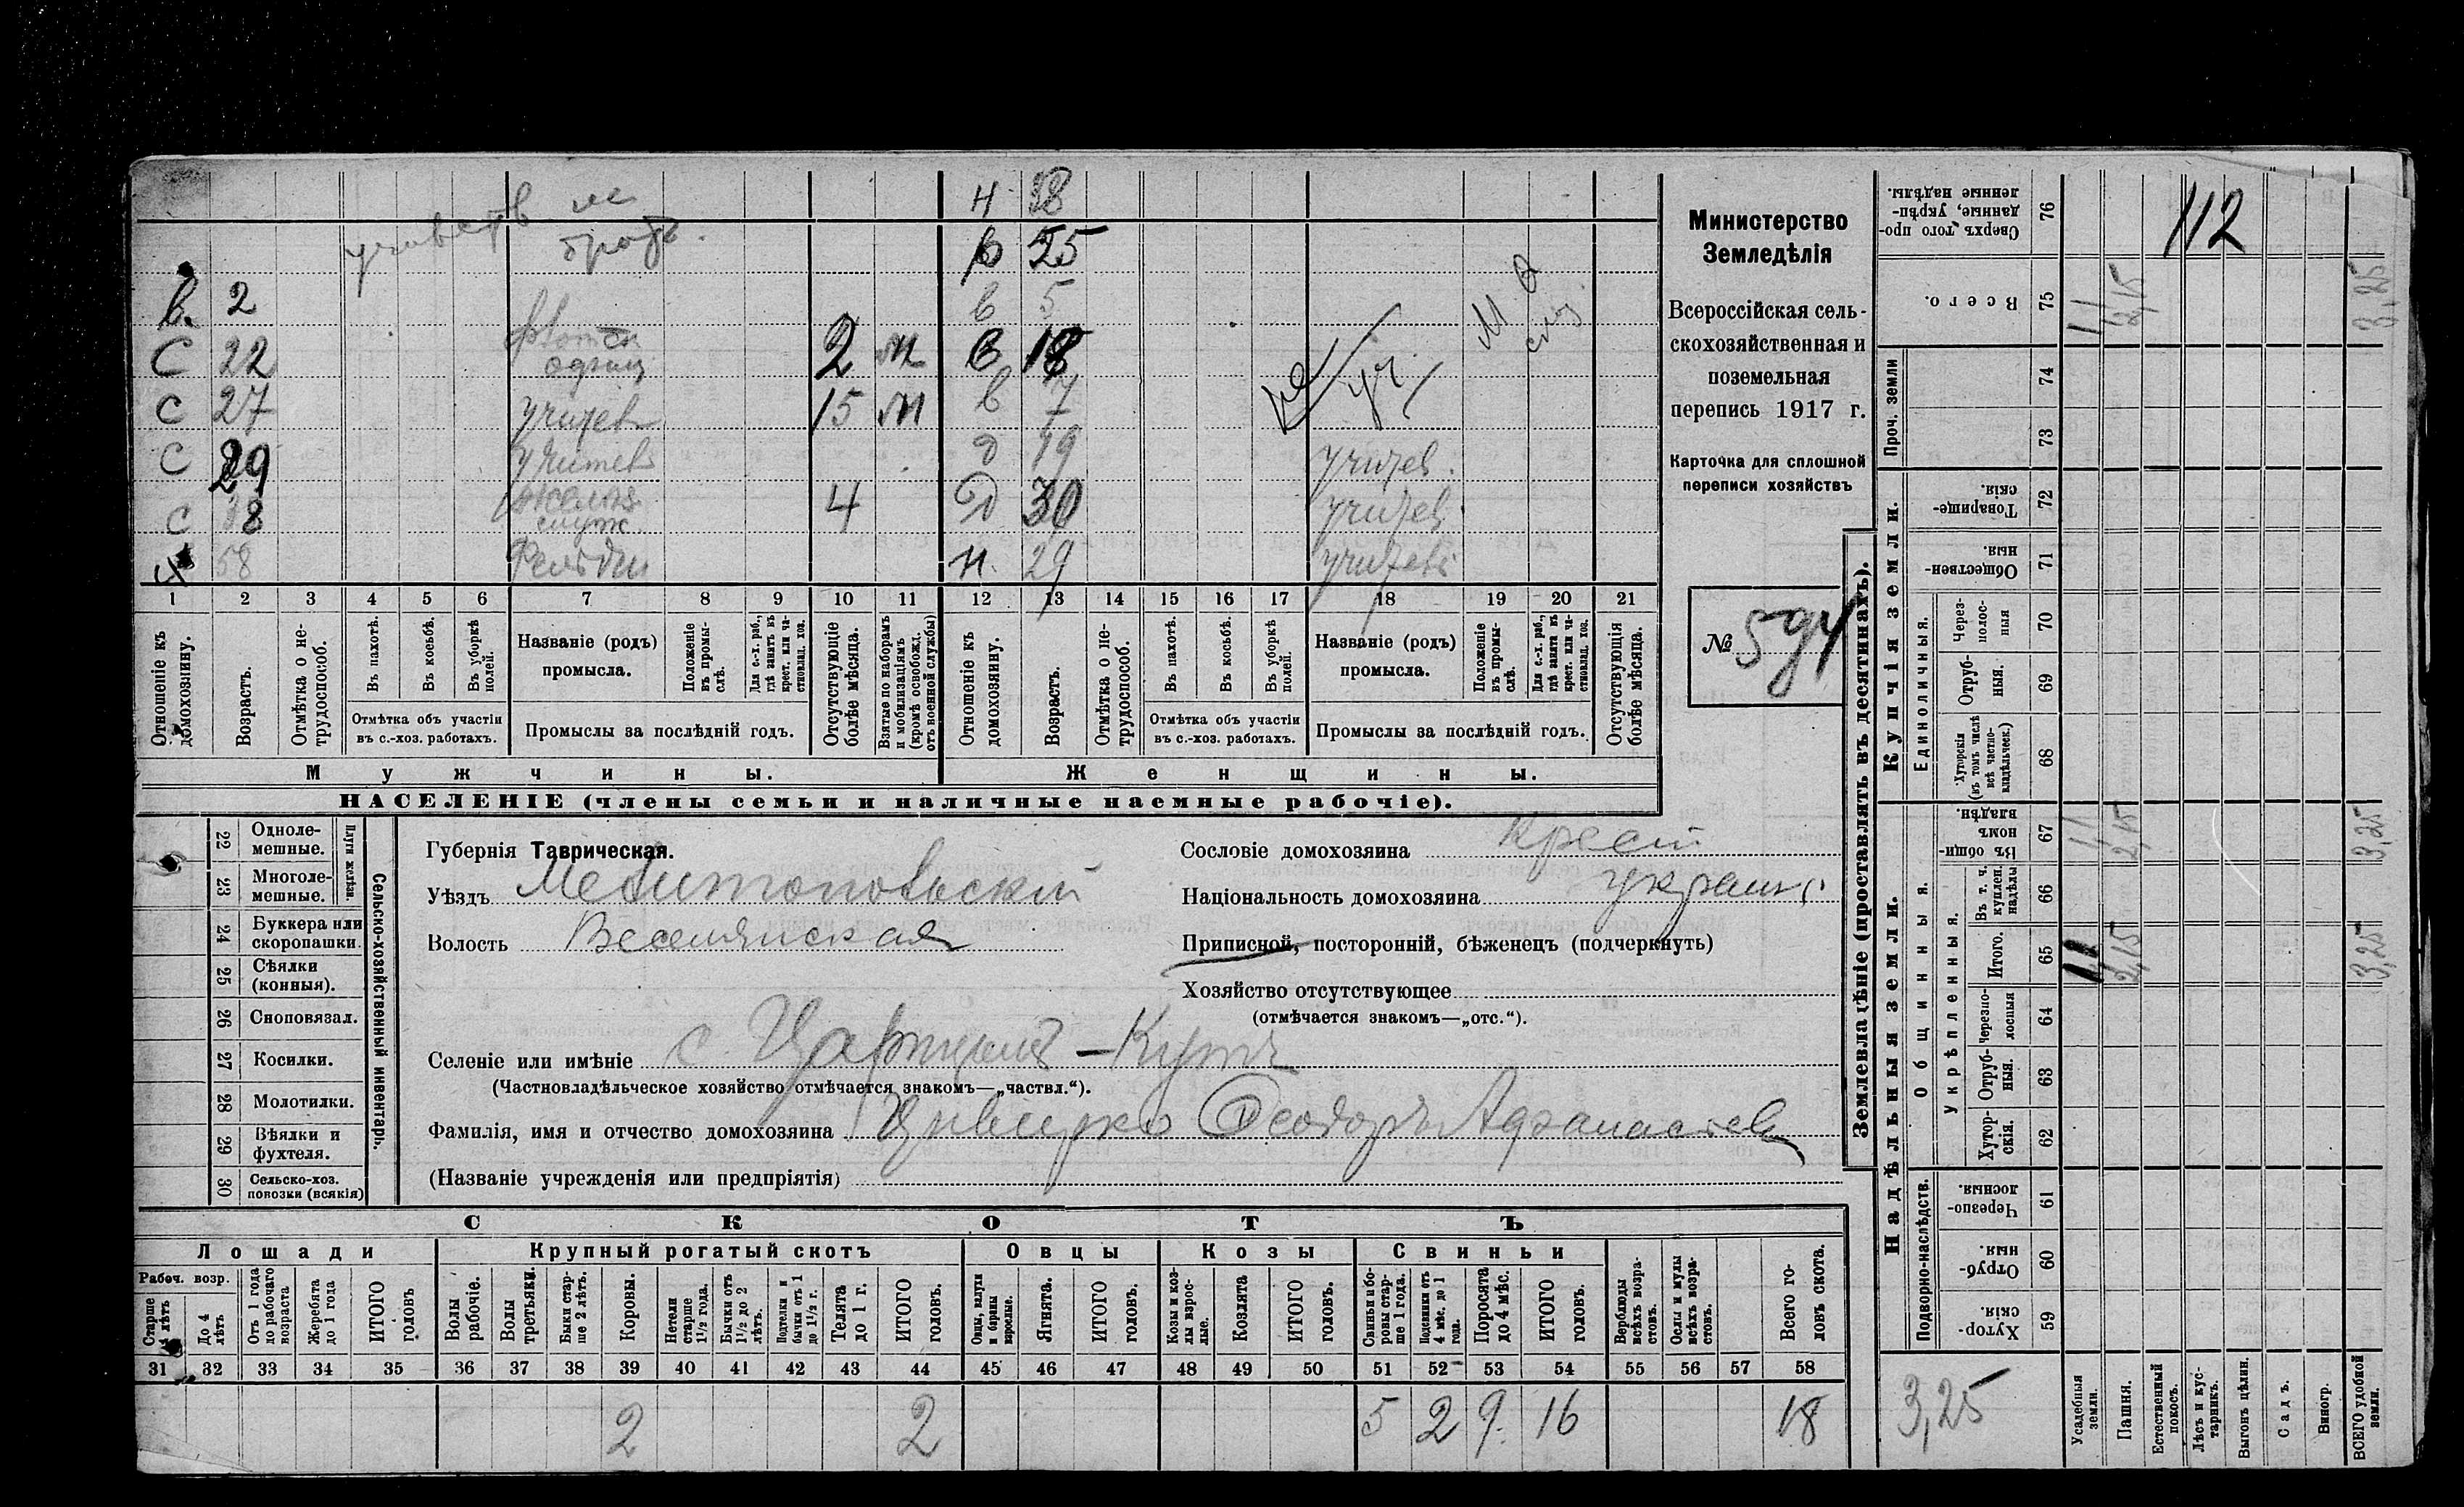 н 38
учительств не
брать.
в 25
в. 2
в 5
М. О
с 22 2 м в 18
служ.
с 27 учитель 15 м в 7
уч.
с 29 учитель д 19 учител.
с 18 желѣзн. служ. 4 д 30 учител.
х 58 Фельдш н. 29 учитель
1 2 3 4 5 6 7 8 9 10 11 12 13 14 15 16 17 18 19 20 21
Отношеніе къ домохозяину.
Возрастъ.
Отмѣтка о нетрудоспособ.
Въ пахотѣ.
Въ косьбѣ.
Въ уборкѣ полей.
Отмѣтка объ участіи въ с.-хоз. работахъ.
Названіе (родъ) промысла.
Положеніе въ промыслѣ.
Для с.-х. раб., гдѣ занятъ въ крест. или частновлад. хоз.
Промыслы за послѣдній годъ.
Отсутствующіе болѣе мѣсяца.
Взятые по наборамъ и мобилизаціямъ (кромѣ освобожд. отъ военной службы)
Отношеніе къ домохозяину.
Возрастъ.
Отмѣтка о нетрудоспособ.
Въ пахотѣ.
Въ косьбѣ.
Въ уборкѣ полей.
Отмѣтка объ участіи въ с.-хоз. работахъ.
Названіе (родъ) промысла.
Положеніе въ промыслѣ.
Для с.-х. раб., гдѣ занятъ въ крест. или частновлад. хоз.
Промыслы за послѣдній годъ.
Отсутствующія болѣе мѣсяца.
Мужчины.
Женщины.
НАСЕЛЕНІЕ (члены семьи и наличные наемные рабочіе).
Министерство
Земледѣлія
Всероссійская сель-
скохозяйственная и
поземельная
перепись 1917 г.
Карточка для сплошной
переписи хозяйствъ
№ 594
Сельско-хозяйственный инвентарь.
Плуги желѣзн.
22 Однолемешные.
23 Многолемешные.
24 Буккера или скоропашки.
25 Сѣялки (конныя).
26 Сноповязал.
27 Косилки.
28 Молотилки.
29 Вѣялки и фухтеля.
30 Сельско-хоз. повозки (всякія)
Губернія Таврическая.
Уѣздъ Мелитопольскій
Волость Веселянская
Селеніе или имѣніе с. Царицынъ-Кутъ
(Частновладѣльческое хозяйство отмѣчается знакомъ—„частвл.“).
Фамилія, имя и отчество домохозяина Феодоръ Афанасьев
(Названіе учрежденія или предпріятія)
Сословіе домохозяина крест
Національность домохозяина украин
Приписной, посторонній, бѣженецъ (подчеркнуть)
Хозяйство отсутствующее
(отмѣчается знакомъ—„отс.“).
СКОТЪ
Лошади
Крупный рогатый скотъ
Овцы
Козы
Свиньи
Рабоч. возр.
Старше 4 лѣтъ
До 4 лѣтъ
Отъ 1 года до рабочаго возраста
Жеребята до 1 года
ИТОГО головъ
Волы рабочіе.
Волы третьяки.
Быки старше 2 лѣтъ.
Коровы.
Нетели старше 1½ года.
Бычки отъ 1½ до 2 лѣтъ.
Подтелки и бычки отъ 1 до 1½ г.
Телята до 1 г.
ИТОГО головъ.
Овцы, валухи и бараны взрослые.
Ягнята.
ИТОГО головъ.
Козы и козлы взрослые.
Козлята
ИТОГО головъ.
Свиньи и боровы старше 1 года.
Подсвинки отъ 4 мѣс. до 1 года.
Поросята до 4 мѣс.
ИТОГО головъ.
Верблюды всѣхъ возрастовъ.
Ослы и мулы всѣхъ возрастовъ.
Всего головъ скота.
31 32 33 34 35 36 37 38 39 40 41 42 43 44 45 46 47 48 49 50 51 52 53 54 55 56 57 58
2 2 5 2 9 16 18
Землевладѣніе (проставлять въ десятинахъ).
Надѣльныя земли.
Купчія земли.
Проч. земли
Подворно-наслѣдств.
Общинныя.
Укрѣпленныя.
Единоличныя.
Хуторскія. 59
Отрубныя. 60
Черезполосныя. 61
Хуторскія. 62
Отрубныя. 63
Черезполосныя 64
Итого. 65
Въ т. ч. куплен. надѣлы 66
Въ общинномъ владѣн. 67
Хуторскія (въ томъ числѣ всѣ частновладѣльческ.) 68
Отрубныя. 69
Черезполосныя 70
Общественныя. 71
Товарищескія. 72
73
74
Всего. 75
Сверхъ того проданные, укрѣпленные надѣлы. 76
112
1,1 2,15 3,25
1,1 2,15 3,25
1,1 2,15 3,25
3,25
Усадебныя земли.
Пашня.
Естественный покосъ.
Лѣсъ и кустарникъ.
Выгонъ цѣлин.
Садъ.
Виногр.
ВСЕГО удобной земли.